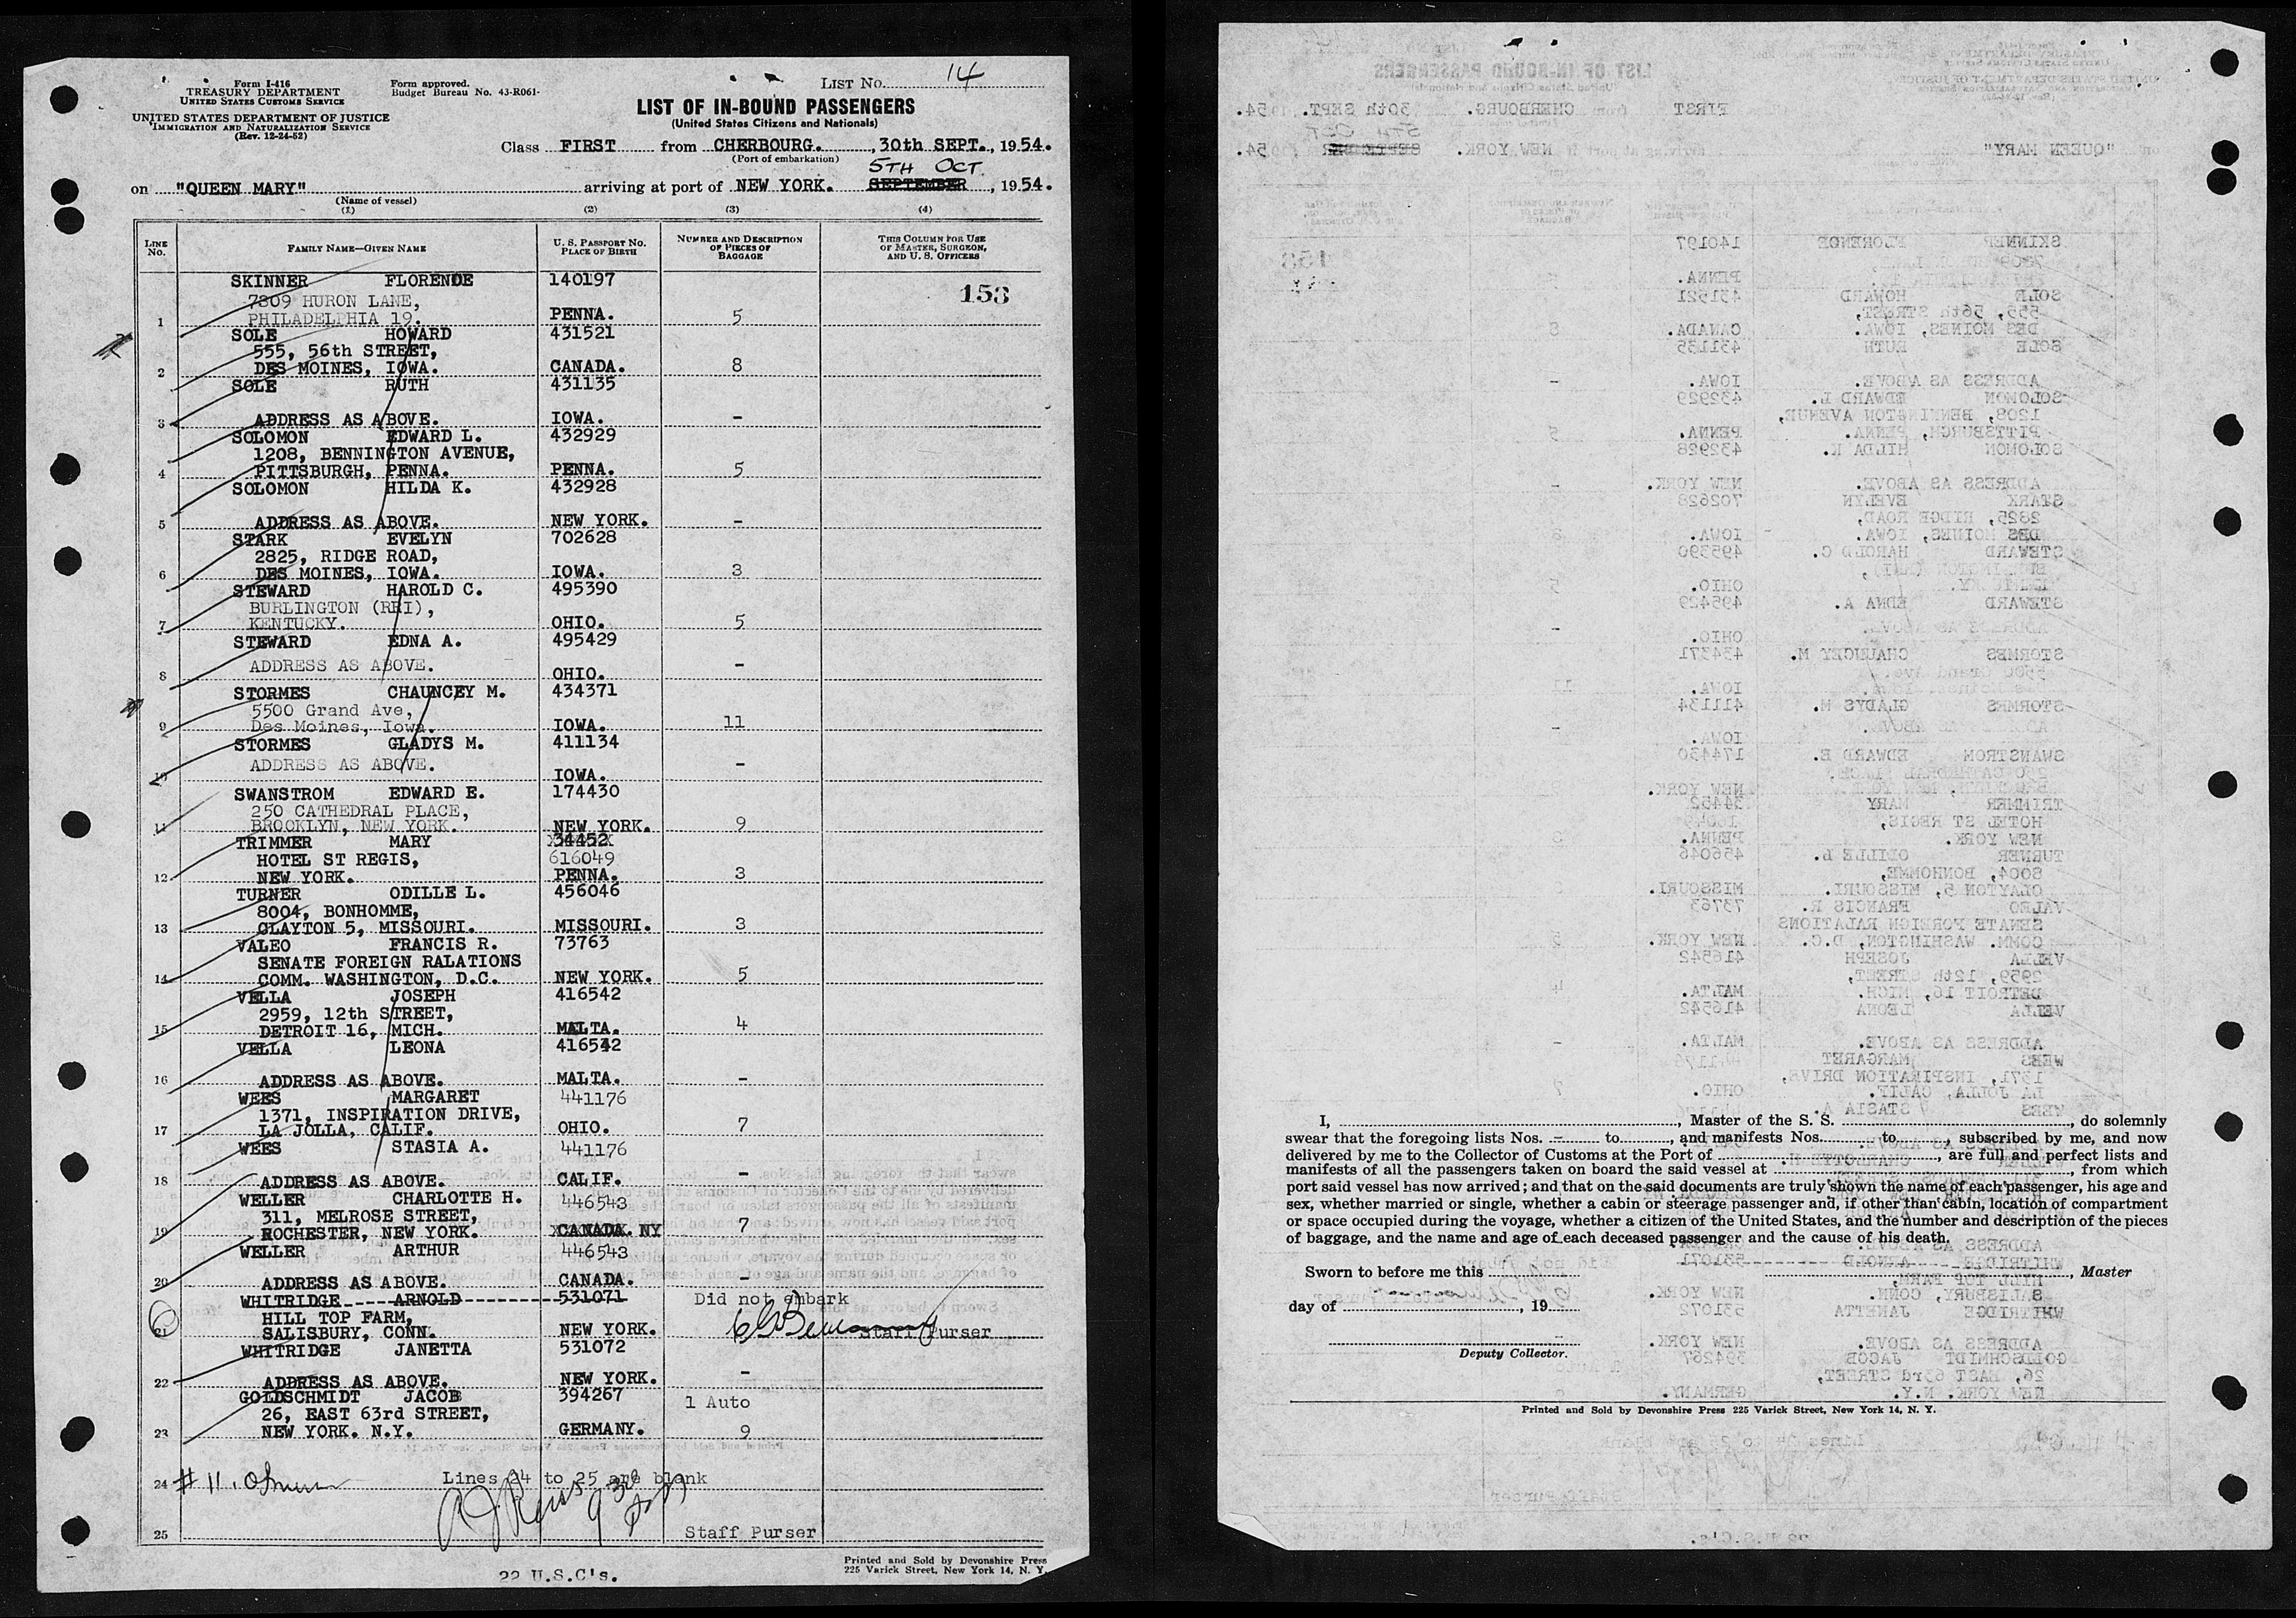 Form I-416
TREASURY DEPARTMENT
UNITED STATES CUSTOMS SERVICE
UNITED STATES DEPARTMENT OF JUSTICE
IMMIGRATION AND NATURALIZATION SERVICE
(Rev. 12-24-52)
Form approved.
Budget Bureau No. 43-R061-
LIST NO. 14
LIST OF IN-BOUND PASSENGERS
(United States Citizens and Nationals)
Class FIRST from CHERBOURG. , 30th SEPT., 1954.
(Port of embarkation)
5TH OCT.
on "QUEEN MARY" arriving at port of NEW YORK. SEPTEMBER, 1954.
(Name of vessel)
(1) (2) (3) (4)
LINE NO. FAMILY NAME—GIVEN NAME U. S. PASSPORT NO. PLACE OF BIRTH NUMBER AND DESCRIPTION OF PIECES OF BAGGAGE THIS COLUMN FOR USE OF MASTER, SURGEON, AND U. S. OFFICERS
SKINNER FLORENCE 140197
7809 HURON LANE, 153
1 PHILADELPHIA 19. PENNA. 5
SOLE HOWARD 431521
555, 56th STREET,
2 DES MOINES, IOWA. CANADA. 8
SOLE RUTH 431135
3 ADDRESS AS ABOVE. IOWA. -
SOLOMON EDWARD L. 432929
1208, BENNINGTON AVENUE,
4 PITTSBURGH, PENNA. PENNA. 5
SOLOMON HILDA K. 432928
5 ADDRESS AS ABOVE. NEW YORK. -
STARK EVELYN 702628
2825, RIDGE ROAD,
6 DES MOINES, IOWA. IOWA. 3
STEWARD HAROLD C. 495390
BURLINGTON (RRI),
7 KENTUCKY. OHIO. 5
STEWARD EDNA A. 495429
ADDRESS AS ABOVE. -
8 OHIO.
STORMES CHAUNCEY M. 434371
5500 Grand Ave,
9 Des Moines, Iowa. IOWA. 11
STORMES GLADYS M. 411134
ADDRESS AS ABOVE. -
10 IOWA.
SWANSTROM EDWARD E. 174430
250 CATHEDRAL PLACE,
11 BROOKLYN, NEW YORK. NEW YORK. 9
TRIMMER MARY 34452
HOTEL ST REGIS, 616049
12 NEW YORK. PENNA. 3
TURNER ODILLE L. 456046
8004, BONHOMME,
13 CLAYTON 5, MISSOURI. MISSOURI. 3
VALEO FRANCIS R. 73763
SENATE FOREIGN RALATIONS
14 COMM. WASHINGTON, D.C. NEW YORK. 5
VELLA JOSEPH 416542
2959, 12th STREET,
15 DETROIT 16, MICH. MALTA. 4
VELLA LEONA 416542
16 ADDRESS AS ABOVE. MALTA. -
WEES MARGARET 441176
1371, INSPIRATION DRIVE,
17 LA JOLLA, CALIF. OHIO. 7
WEES STASIA A. 441176
18 ADDRESS AS ABOVE. CALIF. -
WELLER CHARLOTTE H. 446543
311, MELROSE STREET,
19 ROCHESTER, NEW YORK. CANADA. NY 7
WELLER ARTHUR 446543
20 ADDRESS AS ABOVE. CANADA. -
WHITRIDGE ARNOLD 531071 Did not embark
HILL TOP FARM,
21 SALISBURY, CONN. NEW YORK. Staff Purser
WHITRIDGE JANETTA 531072
22 ADDRESS AS ABOVE. NEW YORK. -
GOLDSCHMIDT JACOB 394267 1 Auto
26, EAST 63rd STREET,
23 NEW YORK. N.Y. GERMANY. 9
24 # 11. Lines 24 to 25 are blank
25 Staff Purser
22 U.S.C's.
Printed and Sold by Devonshire Press
225 Varick Street, New York 14, N. Y.
I, , Master of the S. S. , do solemnly
swear that the foregoing lists Nos. - to , and manifests Nos. to , subscribed by me, and now
delivered by me to the Collector of Customs at the Port of , are full and perfect lists and
manifests of all the passengers taken on board the said vessel at , from which
port said vessel has now arrived; and that on the said documents are truly shown the name of each passenger, his age and
sex, whether married or single, whether a cabin or steerage passenger and, if other than cabin, location of compartment
or space occupied during the voyage, whether a citizen of the United States, and the number and description of the pieces
of baggage, and the name and age of each deceased passenger and the cause of his death.
Sworn to before me this , Master
day of , 19
Deputy Collector.
Printed and Sold by Devonshire Press 225 Varick Street, New York 14, N. Y.